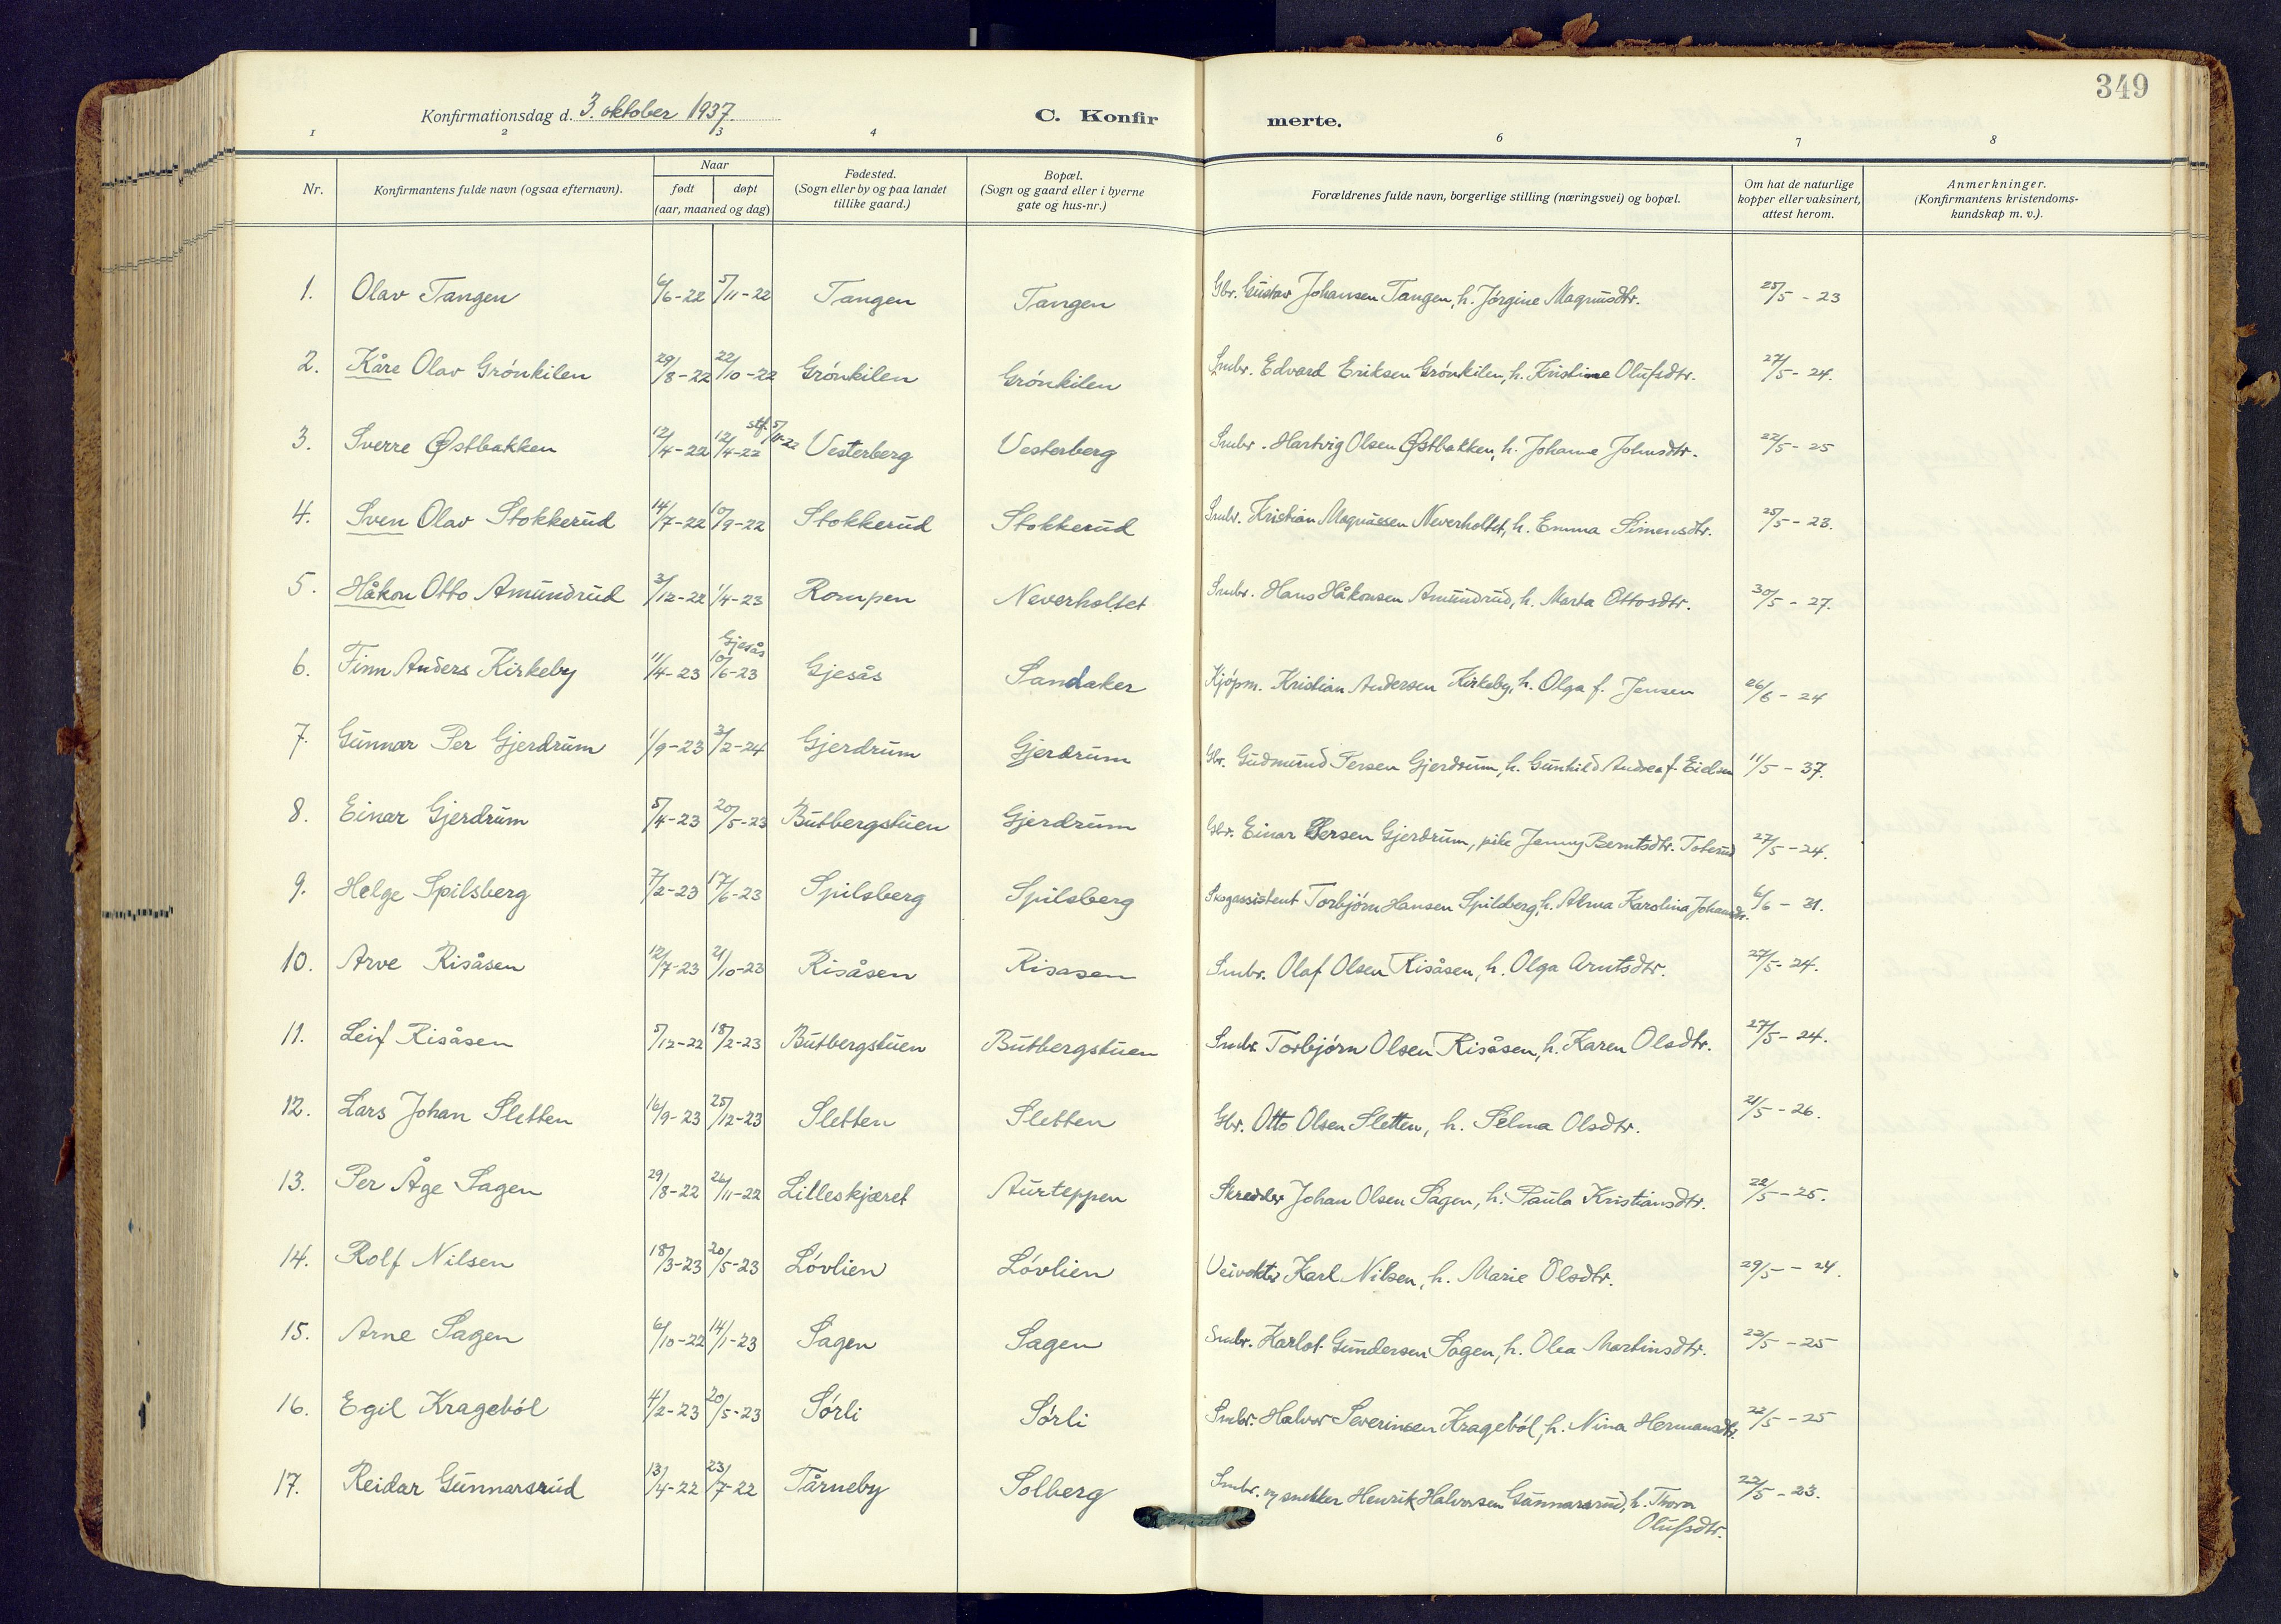 349
Konfirmationsdag d. 3. oktober 1937.
C. Konfirmerte.
1 2 3 4 6 7 8
Nr. Konfirmantens fulde navn (ogsaa efternavn). Naar født døpt (aar, maaned og dag) Fødested. (Sogn eller by og paa landet tillike gaard.) Bopæl. (Sogn og gaard eller i byerne gate og hus-nr.) Forældrenes fulde navn, borgerlige stilling (næringsvei) og bopæl. Om hat de naturlige kopper eller vaksinert, attest herom. Anmerkninger. (Konfirmantens kristendomskundskap m. v.).
1. Olav Tangen 6/6-22 5/11-22 Tangen Tangen Gbr. Gustav Johansen Tangen, h. Jørgine Magnusdtr. 25/5 - 23
2. Kåre Olav Grónkilen 29/8-22 22/10-22 Grónkilen Grónkilen Smbr. Edvard Eriksen Grónkilen, h. Kristine Olufsdtr. 27/5 - 24.
3. Sverre Østbakken 12/4-22 12/4-22 stf. 5/11-22 Vesterberg Vesterberg Smbr. Hartvig Olsen Østbakken, h. Johanne Johnsdtr. 22/5 - 25
4. Sven Olav Stokkerud 14/7-22 10/9-22 Stokkerud Stokkerud Smbr. Kristian Magnussen Neverholtet, h. Emma Simensdtr. 25/5 - 23.
5. Håkon Otto Amundrud 3/12-22 1/4-23 Rompen Neverholtet Smbr. Hans Håkonsen Amundrud, h. Marta Ottosdtr. 30/5 - 27.
6. Finn Anders Kirkeby 11/4-23 Gjesås 10/6-23 Gjesås Sandaker Kjópm. Kristian Andersen Kirkeby, h. Olga f. Jensen 26/6 - 24
7. Gunnar Per Gjerdrum 1/9-23 3/2-24 Gjerdrum Gjerdrum Gbr. Gudmund Persen Gjerdrum, h. Gunhild Andrea f. Eielsen 11/5 - 37.
8. Einar Gjerdrum 5/4-23 20/5-23 Butbergstuen Gjerdrum Gbr. Einar Persen Gjerdrum, pike Jenny Berntsdtr. Toterud 27/5 - 24.
9. Helge Spilsberg 7/2-23 17/6-23 Spilsberg Spilsberg Skogassistent Torbjórn Hansen Spilsberg, h. Alma Karolina Johansdtr. 6/6 - 31.
10. Arve Risåsen 12/7-23 21/10-23 Risåsen Risasen Smbr. Olaf Olsen Risåsen, h. Olga Arntsdtr. 27/5 - 24.
11. Leif Risåsen 5/12-22 18/2-23 Butbergstuen Butbergstuen Smbr. Torbjórn Olsen Risåsen, h. Karen Olsdtr. 27/5 - 24.
12. Lars Johan Sletten 16/9-23 25/12-23 Sletten Sletten Gbr. Otto Olsen Sletten, h. Selma Olsdtr. 21/5 - 26.
13. Per Åge Sagen 29/8-22 26/11-22 Lilleskjæret Aurteppen Skredder Johan Olsen Sagen, h. Paula Kristiansdtr. 22/5 - 25.
14. Rolf Nilsen 18/3-23 20/5-23 Lóvlien Lóvlien Veivokter Karl Nilsen, h. Marie Olsdtr. 29/5 - 24.
15. Arne Sagen 6/10-22 14/1-23 Sagen Sagen Smbr. Karlot Gundersen Sagen, h. Olea Martinsdtr. 22/5 - 25
16. Egil Krageból 4/2-23 20/5-23 Sórli Sórli Smbr. Halvor Severinsen Krageból, h. Nina Hermansdtr. 22/5 - 25
17. Reidar Gunnarsrud 13/4-22 23/7-22 Tårneby Solberg Smbr. og snekker Henrik Halvorsen Gunnarsrud, h. Thora Olufsdtr. 22/5 - 23.